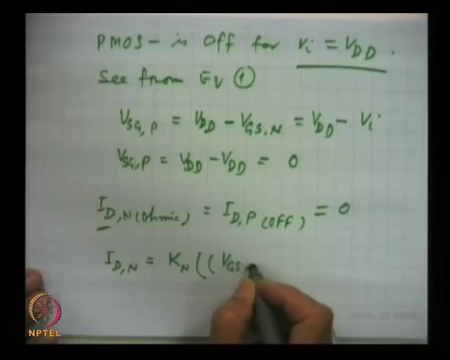 PMOS - is Off for Vi = VDD.
See from Eq ①
VSG,P = VDD - VGS,N = VDD - Vi
VSG,P = VDD - VDD = 0
ID,N(ohmic) = ID,P(OFF) = 0
ID,N = KN ((VGS
NPTEL